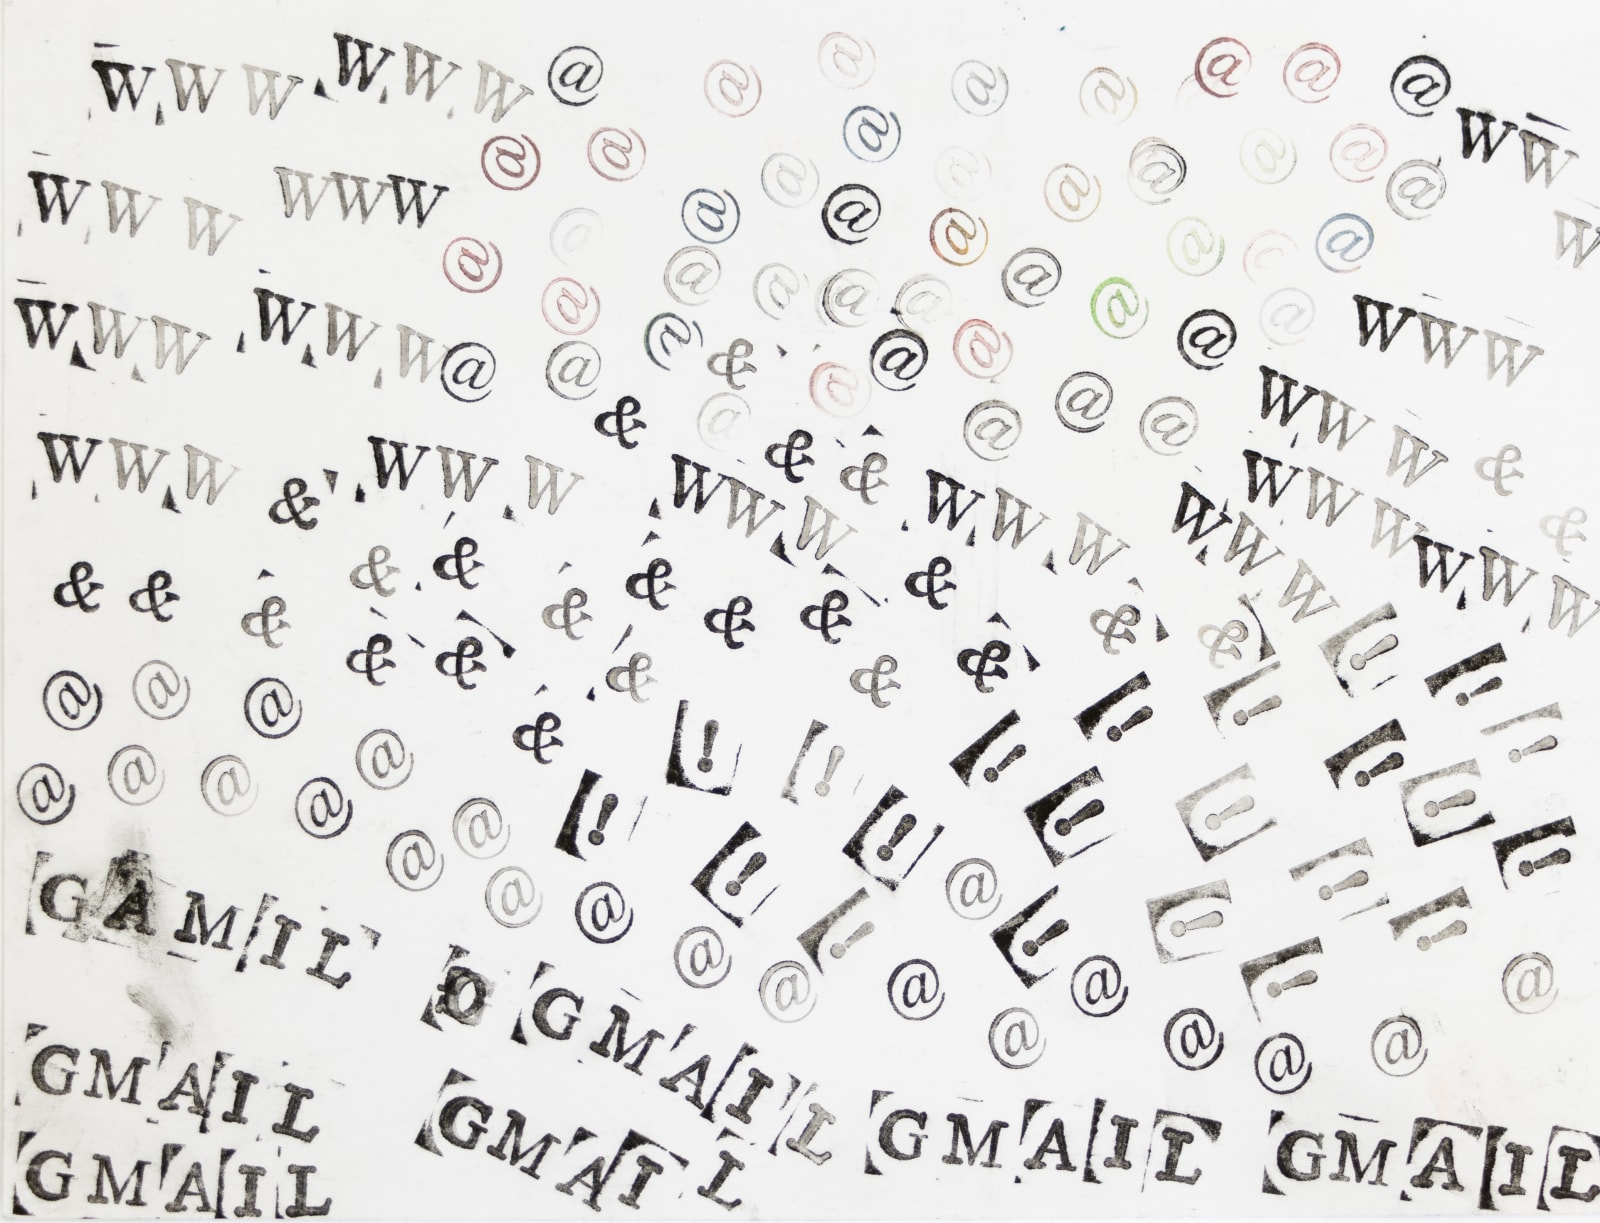 WWW WWW @ @ @ @ @ @ @ @
@ @ @ WW
WWW WWW @ @ @ @ @ @ @ @ W
@ @ @ @ @ @ @ @ @
@ @ @ @ @ @ @ @
WWW WWW @ @ @ & @ @ @ @ WWW
& @ @ @ @ WWW &
WWW & WWW WWW & & WWW WWW WWW &
& & & & & & & & & & & & WWW
& & & & & & & ! !
@ @ @ & ! ! ! ! ! ! !
@ @ @ @ @ ! ! ! ! ! ! !
@ @ @ @ ! ! @ ! ! !
GAMIL @ @ ! @ ! @ ! @
@ GMAIL @ @ @ @
GMAIL
GMAIL GMAIL GMAIL GMAIL